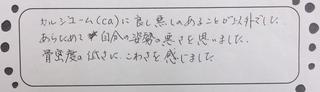 カルシューム(ca)に良し悪しのあることが以外でした
あらためて自分の姿勢の悪さを思いました。
骨密度の低さに、こわさを感じました